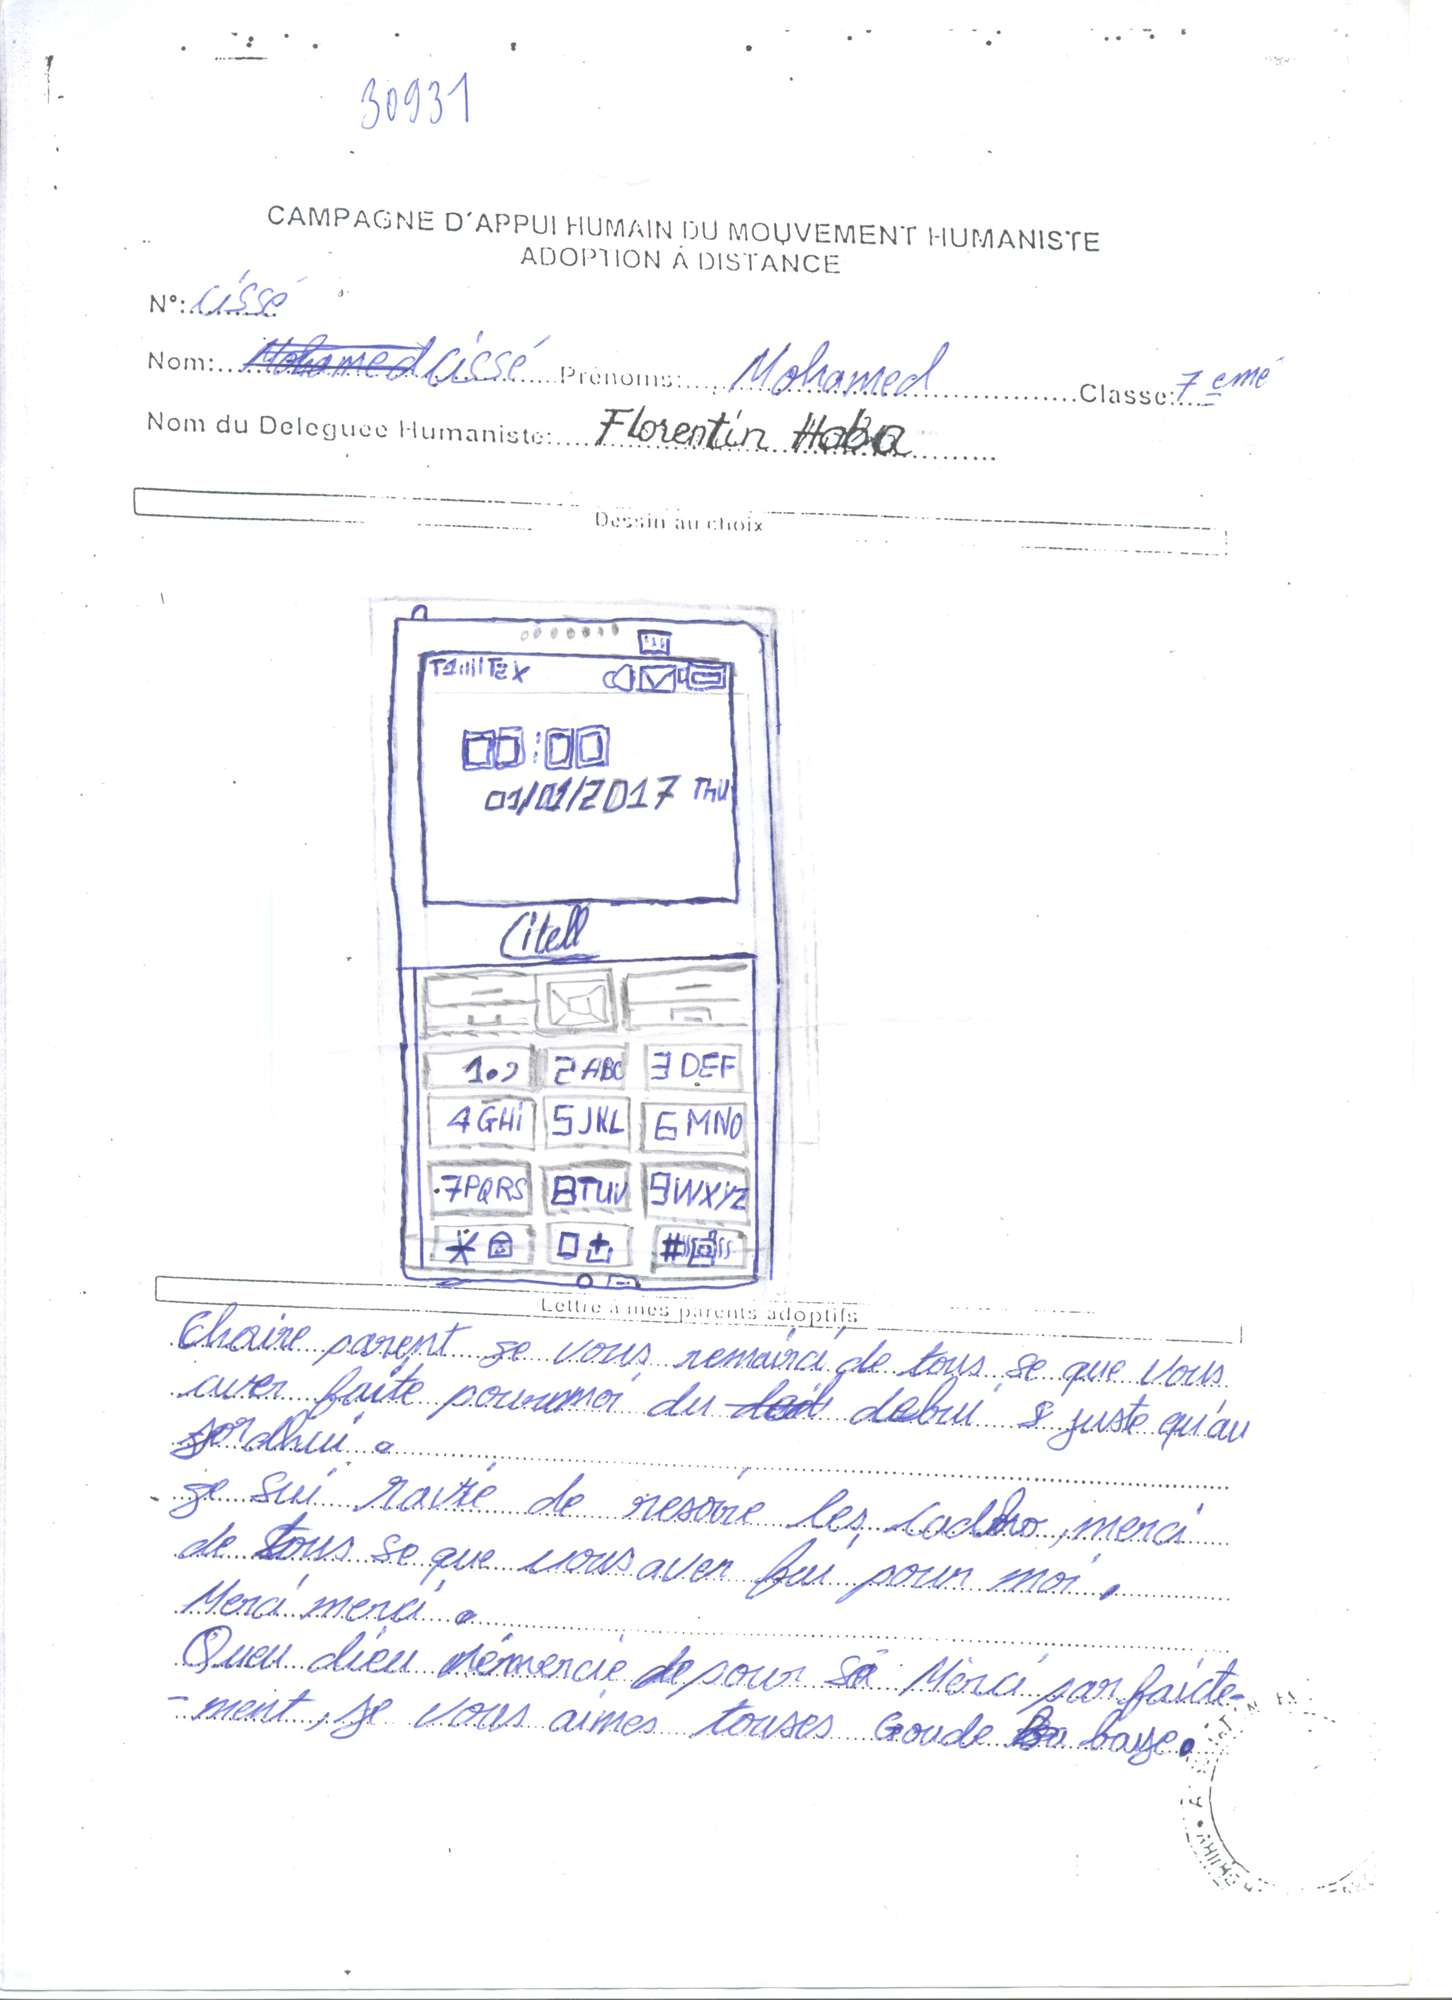 30931
CAMPAGNE D'APPUI HUMAIN DU MOUVEMENT HUMANISTE
ADOPTION À DISTANCE
N°: Cissé
Nom: Mohamed Cissé Prénoms: Mohamed Classe: 7 eme
Nom du Deleguee Humaniste: Florentin Haba
Dessin au choix
T1 T2 X
00:00
01/01/2017 THU
Citell
1 2 ABC 3 DEF
4 GHi 5 JKL 6 MNO
7PQRS 8TUV 9WXYZ
* 0 #
Lettre à mes parents adoptifs
Chaire parent je vous remairci de tous se que vous
aver faite pour moi du debui juste qu'au
jordhui.
je sui de les, merci
de tous se que vous aver fai pour moi.
Merci merci.
Queu dieu rémercie pour sa Merci parfaicte-
-ment, je vous aimes touses Goude baye.